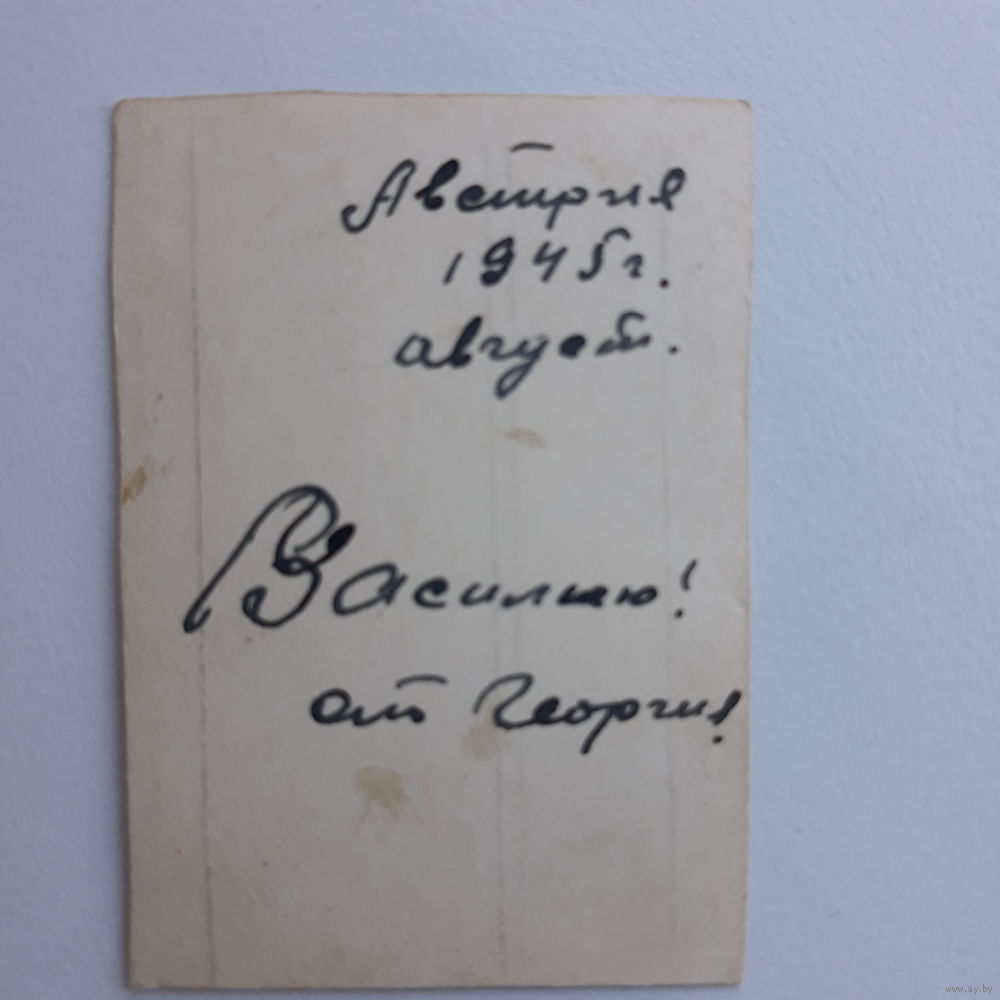 Австрия
1945г.
август.
Василию!
от Георгия.
www.ay.by